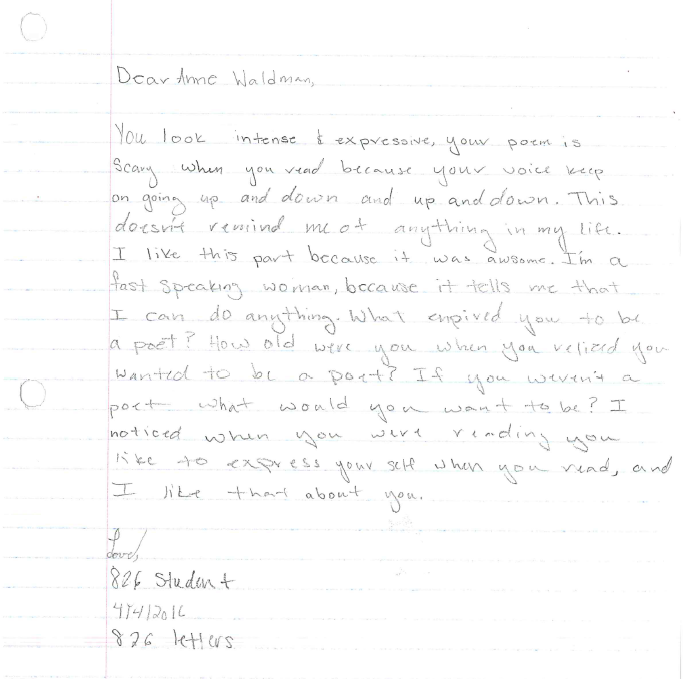 Dear Anne Waldman,
You look intense & expressive, your poem is
Scary when you read because your voice keep
on going up and down and up and down. This
doesn't remind me of anything in my life.
I like this part because it was awsome. I'm a
fast speaking woman, because it tells me that
I can do anything. What enpired you to be
a poet? How old were you when you relized you
wanted to be a poet? If you weren't a
poet what would you want to be? I
noticed when you were reading you
like to express your self when you read, and
I like that about you.
Love,
826 Student
4/4/2016
826 letters